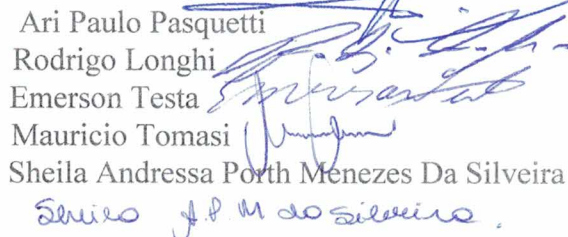 Ari Paulo Pasquetti
Rodrigo Longhi
Emerson Testa
Mauricio Tomasi
Sheila Andressa Porth Menezes Da Silveira
A. P. M da Silveira.